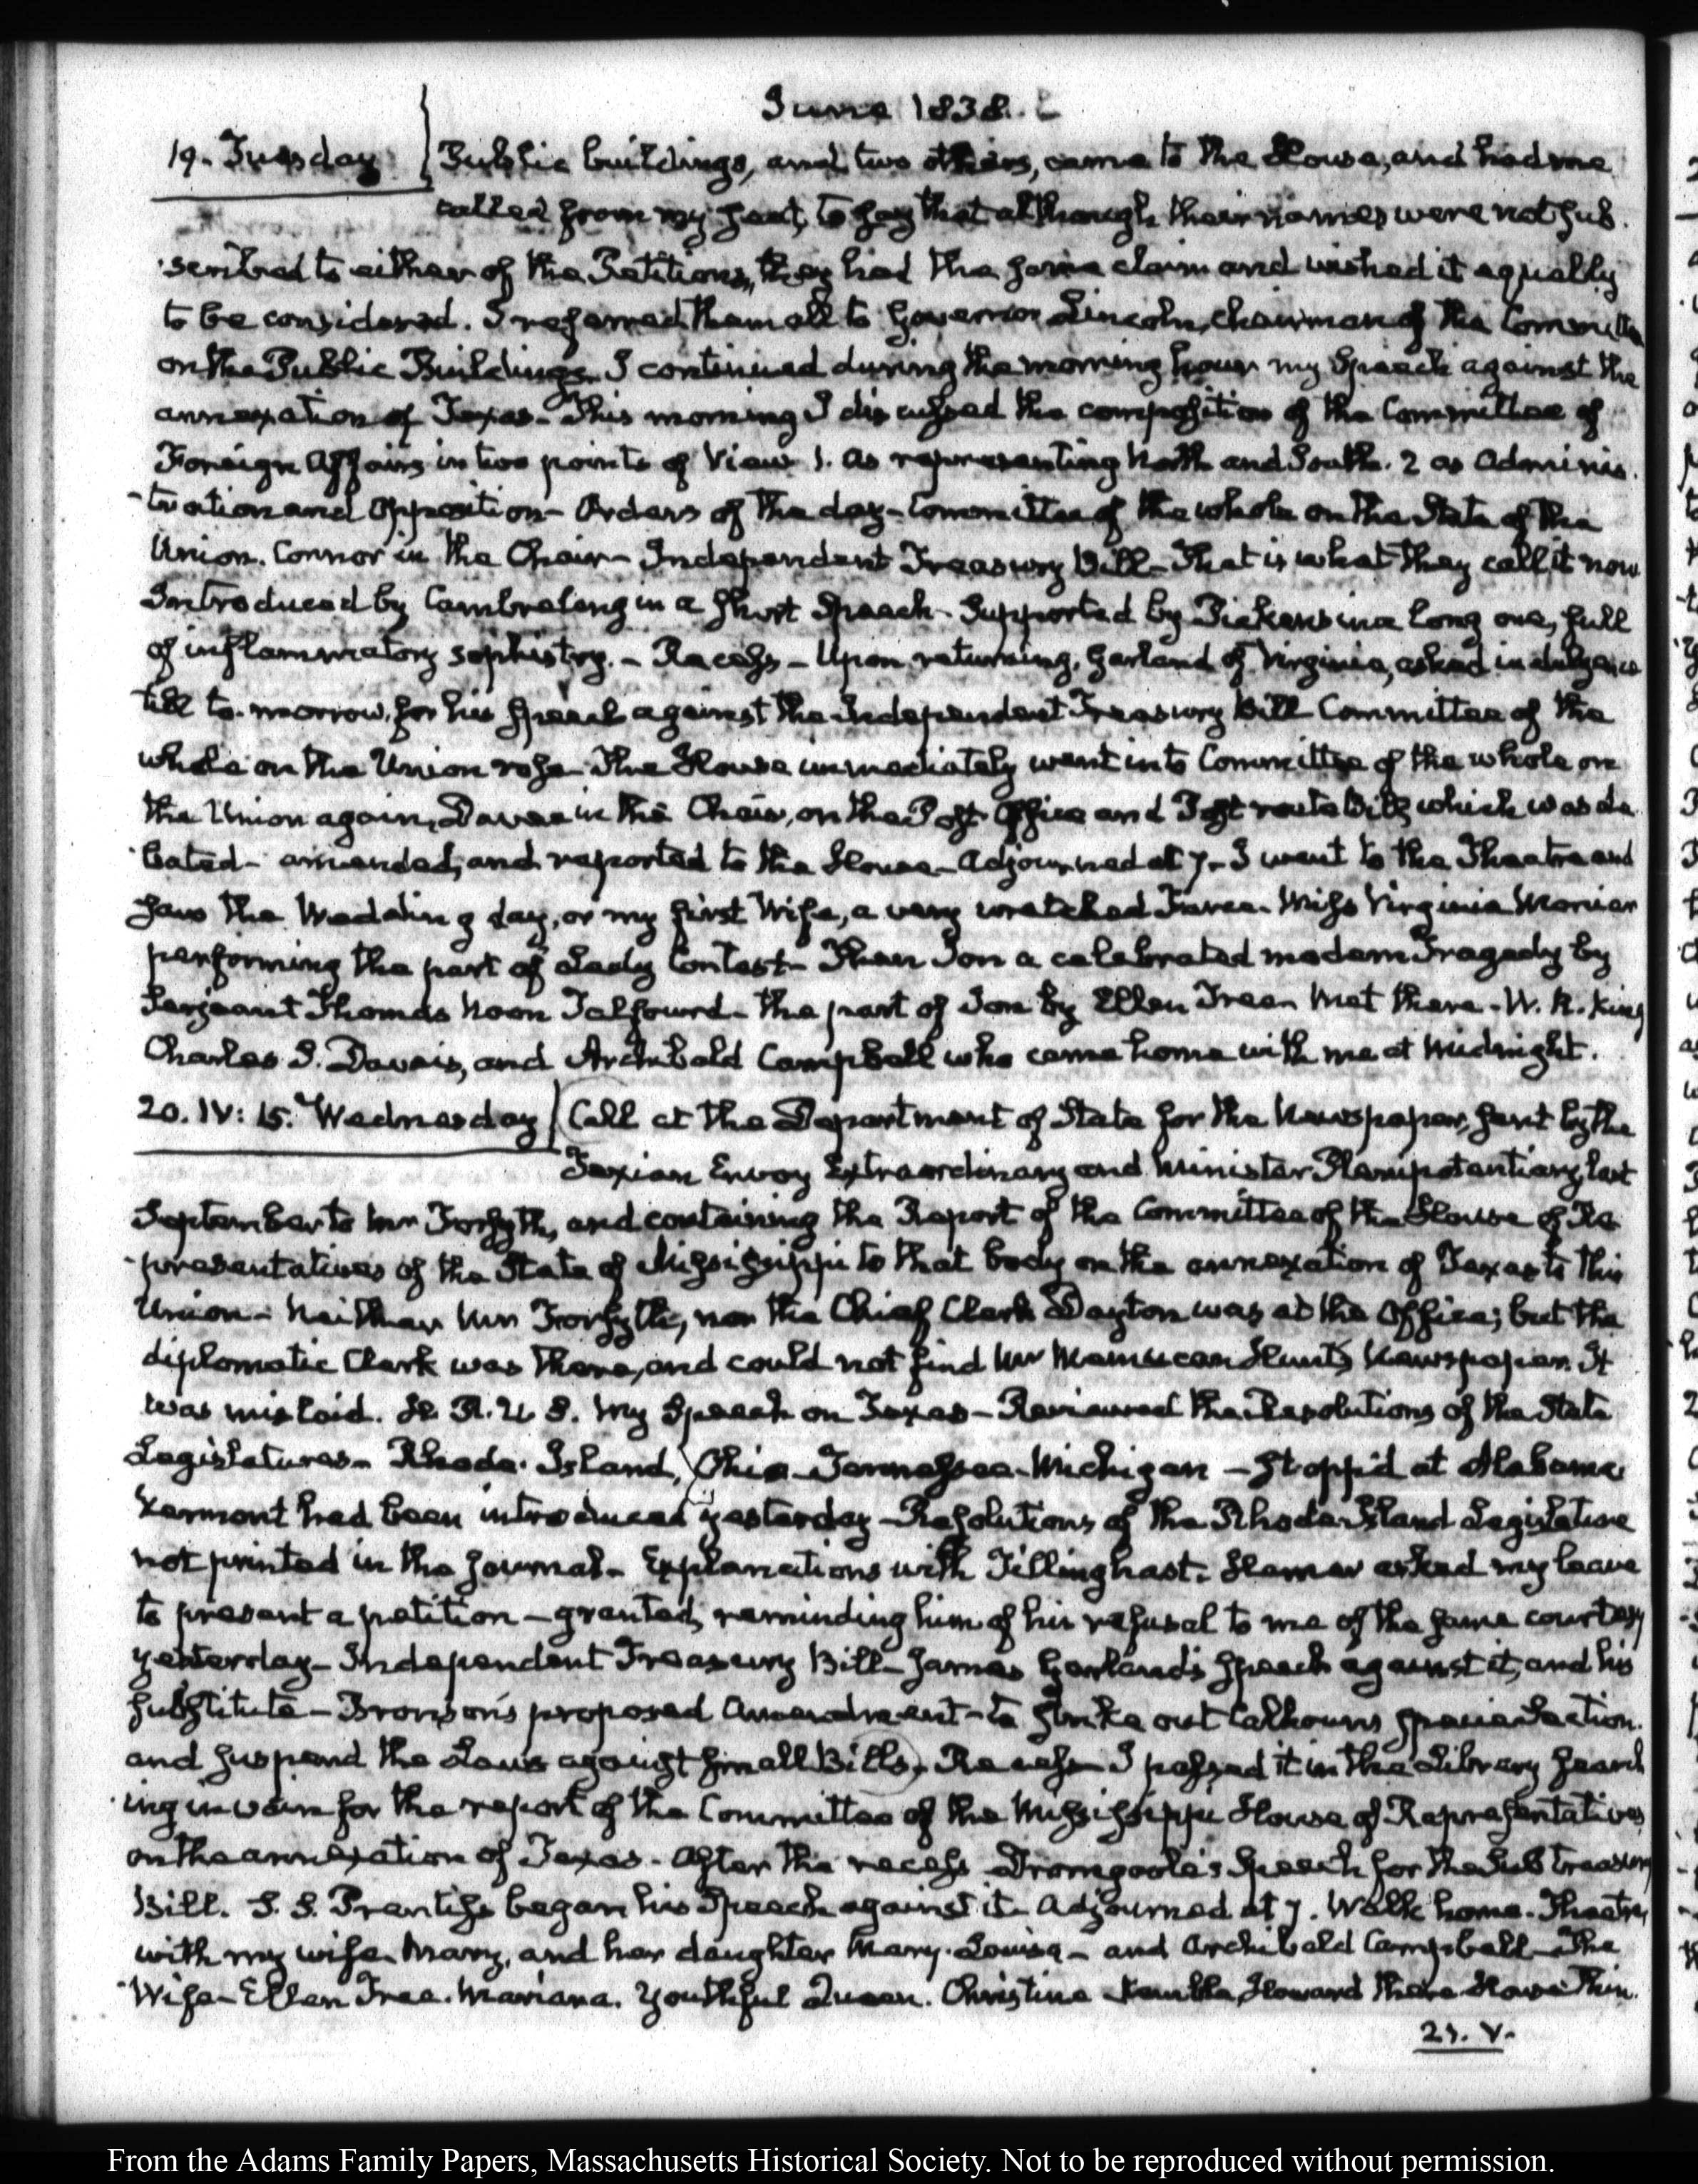 June 1838.
19. Tuesday
Public buildings, and two others, came to the House, and had me
called from my seat, to say that although their names were not sub
scribed to either of the Petitions, they had the same claim and wished it equally
to be considered. I referred them all to Governor Lincoln, chairman of the Committee
on the Public Buildings. I continued during the morning hour my Speech against the
annexation of Texas. This morning I discussed the composition of the Committee of
Foreign Affairs in two points of View 1. as representing North and South. 2 as Adminis
-tration and Opposition - Orders of the day - Committee of the whole on the State of the
Union. Connor in the Chair - Independent Treasury Bill - That is what they call it now
Introduced by Cambreleng in a short Speech - Supported by Pickens in a long one, full
of inflammatory sophistry. - Recess - Upon returning, Garland of Virginia, asked indulgence
till to-morrow, for his Speech against the Independent Treasury Bill Committee of the
whole on the Union rose - The House immediately went into Committee of the whole on
the Union again, Davee in the Chair, on the Post Office and Post route Bill, which was de
bated - amended, and reported to the House - Adjourned at 7 - I went to the Theatre and
saw the Wedding day, or my first Wife, a very wretched Farce - Miss Virginia Monier
performing the part of Lady Contest - Then Ion a celebrated modern Tragedy by
Serjeant Thomas Noon Talfourd - the part of Ion by Ellen Tree - Met there - W. R. King
Charles S. Daveis, and Archibald Campbell who came home with me at Midnight.
20. IV: 15. Wednesday
Call at the Department of State for the Newspaper, sent by the
Texian Envoy Extraordinary and Minister Plenipotentiary, last
September to Mr Forsyth, and containing the Report of the Committee of the House of Re
-presentatives of the State of Mississippi to that body on the annexation of Texas to this
Union - Neither Mr Forsyth, nor the Chief Clerk Dayton was at the Office; but the
diplomatic Clerk was there, and could not find Mr Memucan Hunt's Newspaper. It
was mislaid. H. R. U. S. My Speech on Texas - Reviewed the Resolutions of the State
Legislatures - Rhode-Island, Ohio - Tennessee - Michigan - stopp'd at Alabama
Vermont had been introduced yesterday - Resolutions of the Rhode Island Legislature
not printed in the journal - Explanations with Tillinghast - Hamer asked my leave
to present a petition - granted, reminding him of his refusal to me of the same courtesy
yesterday - Independent Treasury Bill - James Garland's Speech against it, and his
substitute - Bronson's proposed Amendment - to strike out Calhoun's specie Section.
and suspend the Laws against small Bills. Recess - I passed it in the Library search
ing in vain for the report of the Committee of the Mississippi House of Representatives
on the annexation of Texas - After the recess Dromgoole's Speech for the Sub treasury
Bill. S. S. Prentiss began his Speech against it - Adjourned at 7. Walk home - Theatre,
with my wife - Mary, and her daughter Mary-Louisa - and Archibald Campbell - The
Wife - Ellen Tree. Mariana. Youthful Queen. Christine Howard there
21. V.
From the Adams Family Papers, Massachusetts Historical Society. Not to be reproduced without permission.